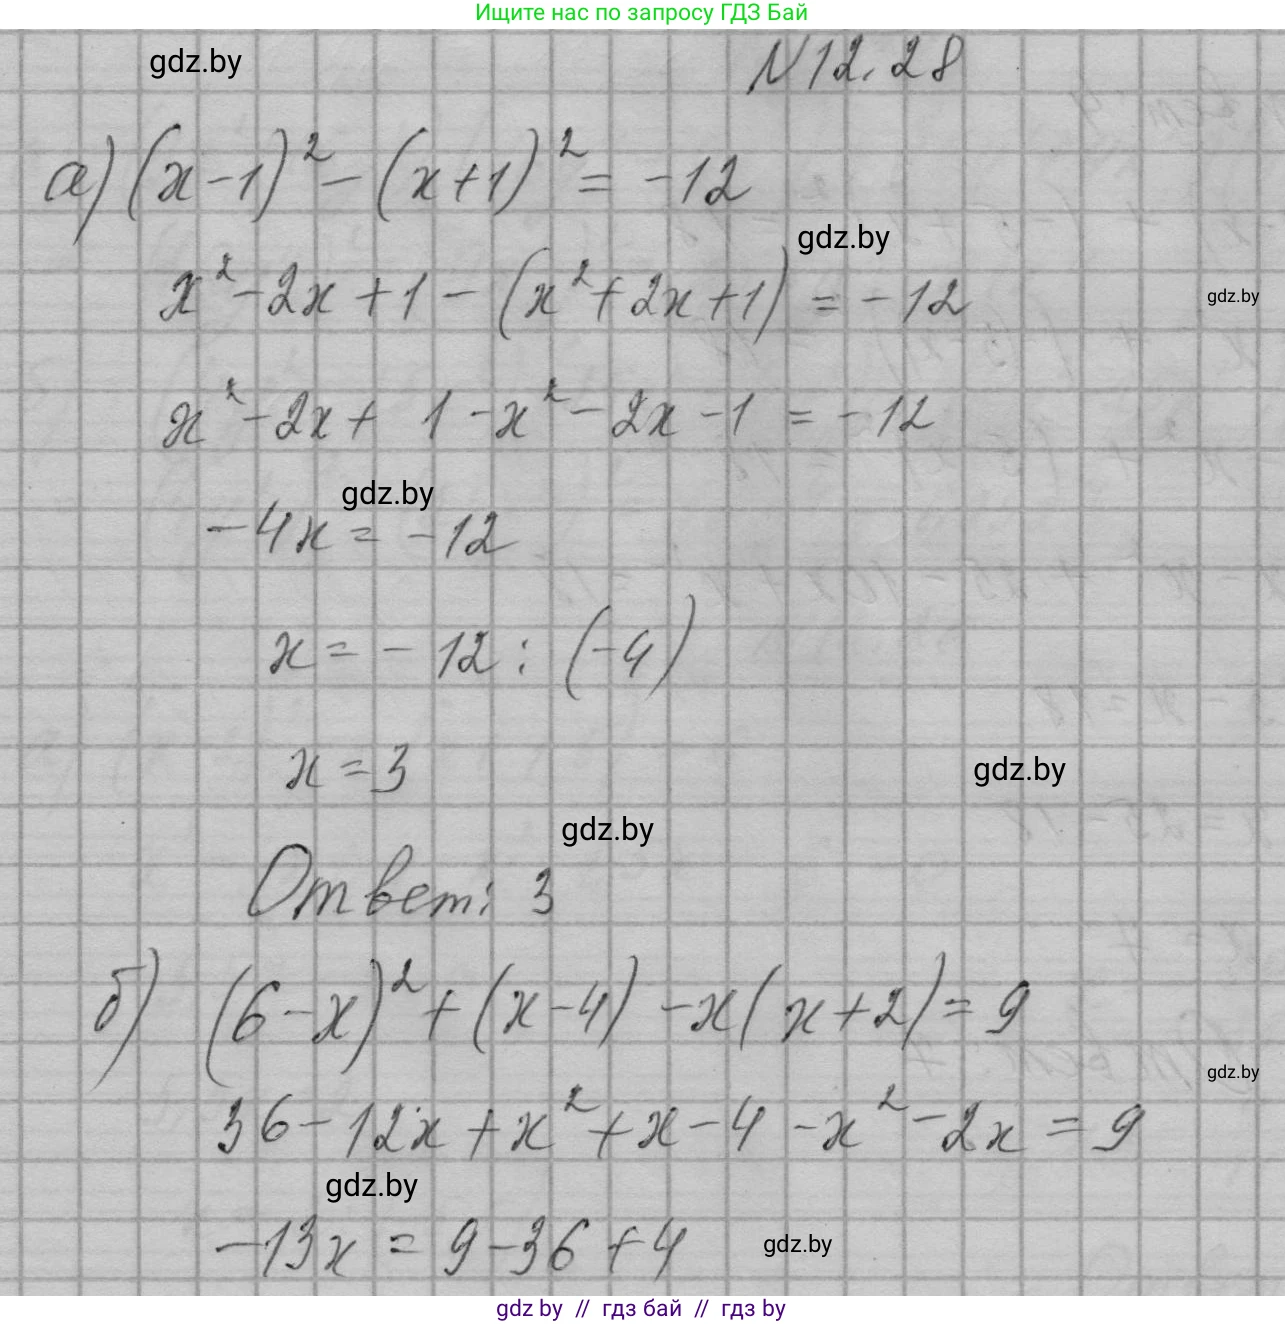 Ищите нас по запросу ГДЗ Бай
gdz.by
N12.28
а) (x-1)² - (x+1)² = -12
gdz.by
x² - 2x + 1 - (x² + 2x + 1) = -12
gdz.by
x² - 2x + 1 - x² - 2x - 1 = -12
gdz.by
-4x = -12
x = -12 : (-4)
x = 3
gdz.by
gdz.by
Ответ: 3
б) (6-x)² + (x-4) - x(x+2) = 9
gdz.by
36 - 12x + x² + x - 4 - x² - 2x = 9
gdz.by
-13x = 9 - 36 + 4
gdz.by
gdz by // гдз бай // гдз by